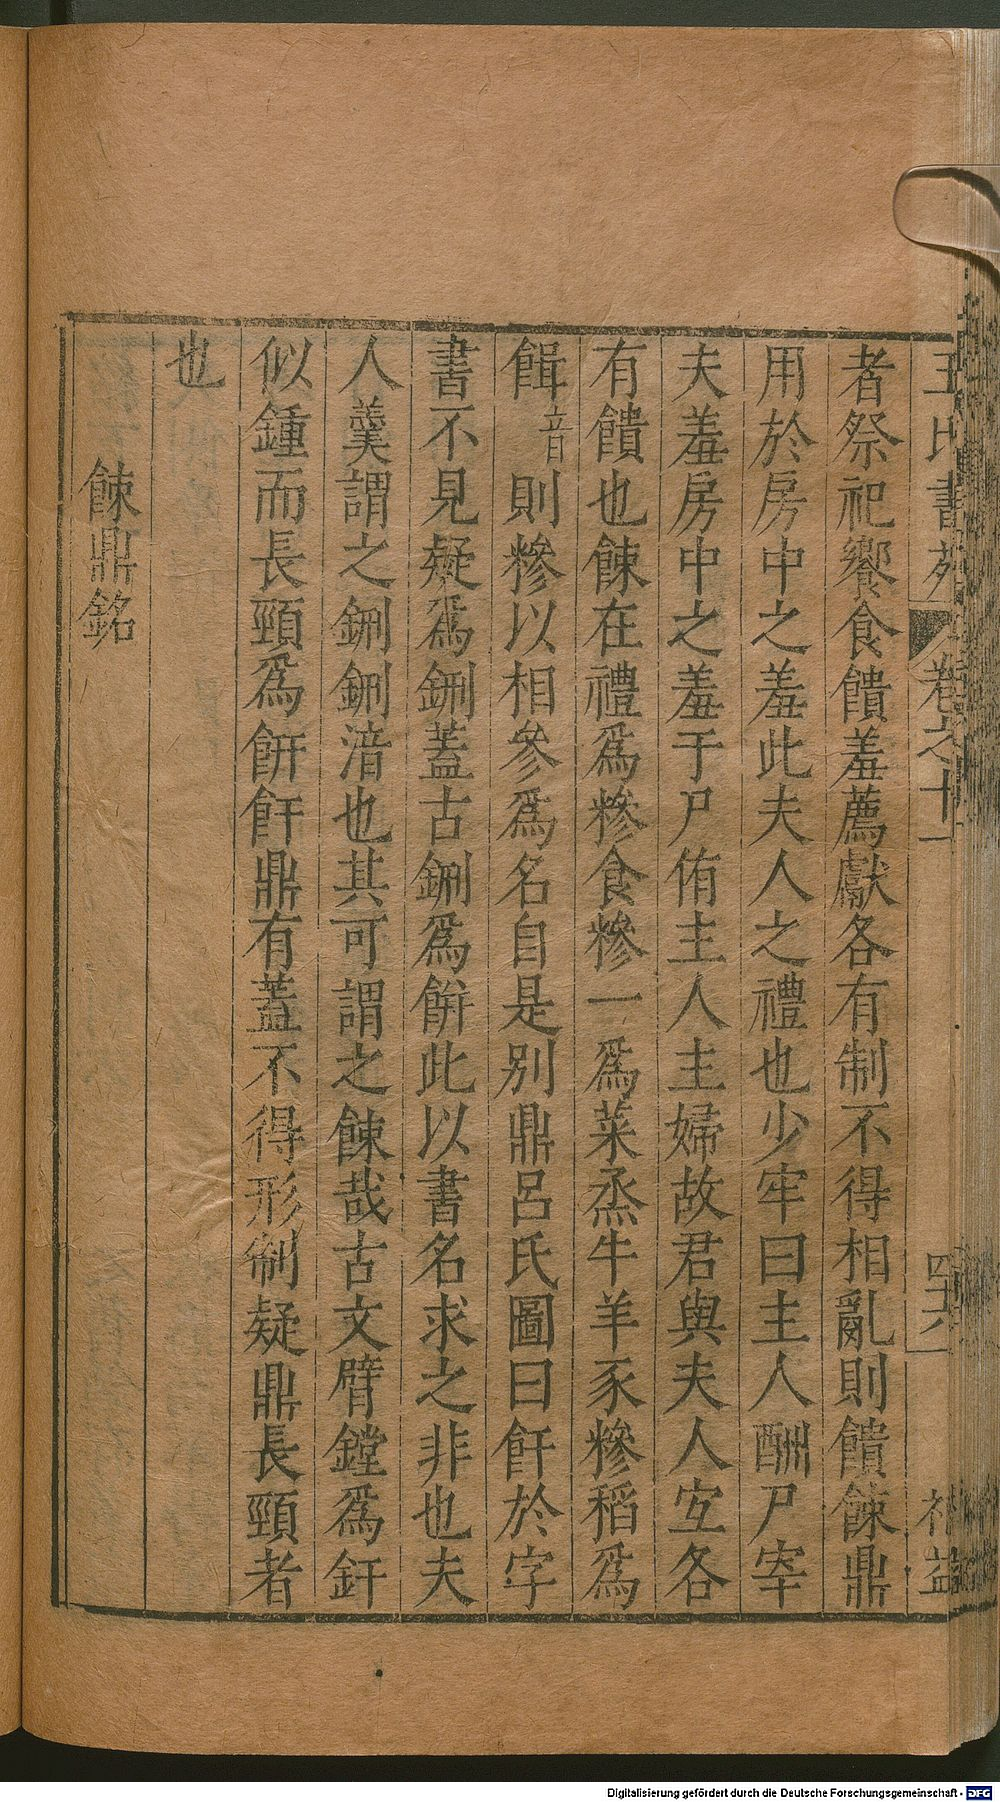 王氏書苑 卷之十一 四十六 祥益
者祭祀饗食饋羞薦獻各有制不得相亂則饋餗鼎
用於房中之羞此夫人之禮也少牢曰主人酬尸宰
夫羞房中之羞于尸侑主人主婦故君與夫人宐各
有饋也餗在禮爲糝食糝一爲菜烝牛羊豕糝稻爲
餌音則糝以相參爲名自是别鼎呂氏圖曰飦於字
書不見疑爲鉶蓋古鉶爲餠此以書名求之非也夫
人羹謂之鉶鉶湆也其可謂之餗哉古文臂鏜爲釬
似鍾而長頸爲餠飦鼎有蓋不得形制疑鼎長頸者
也
餗鼎銘
Digitalisierung gefördert durch die Deutsche Forschungsgemeinschaft - DFG